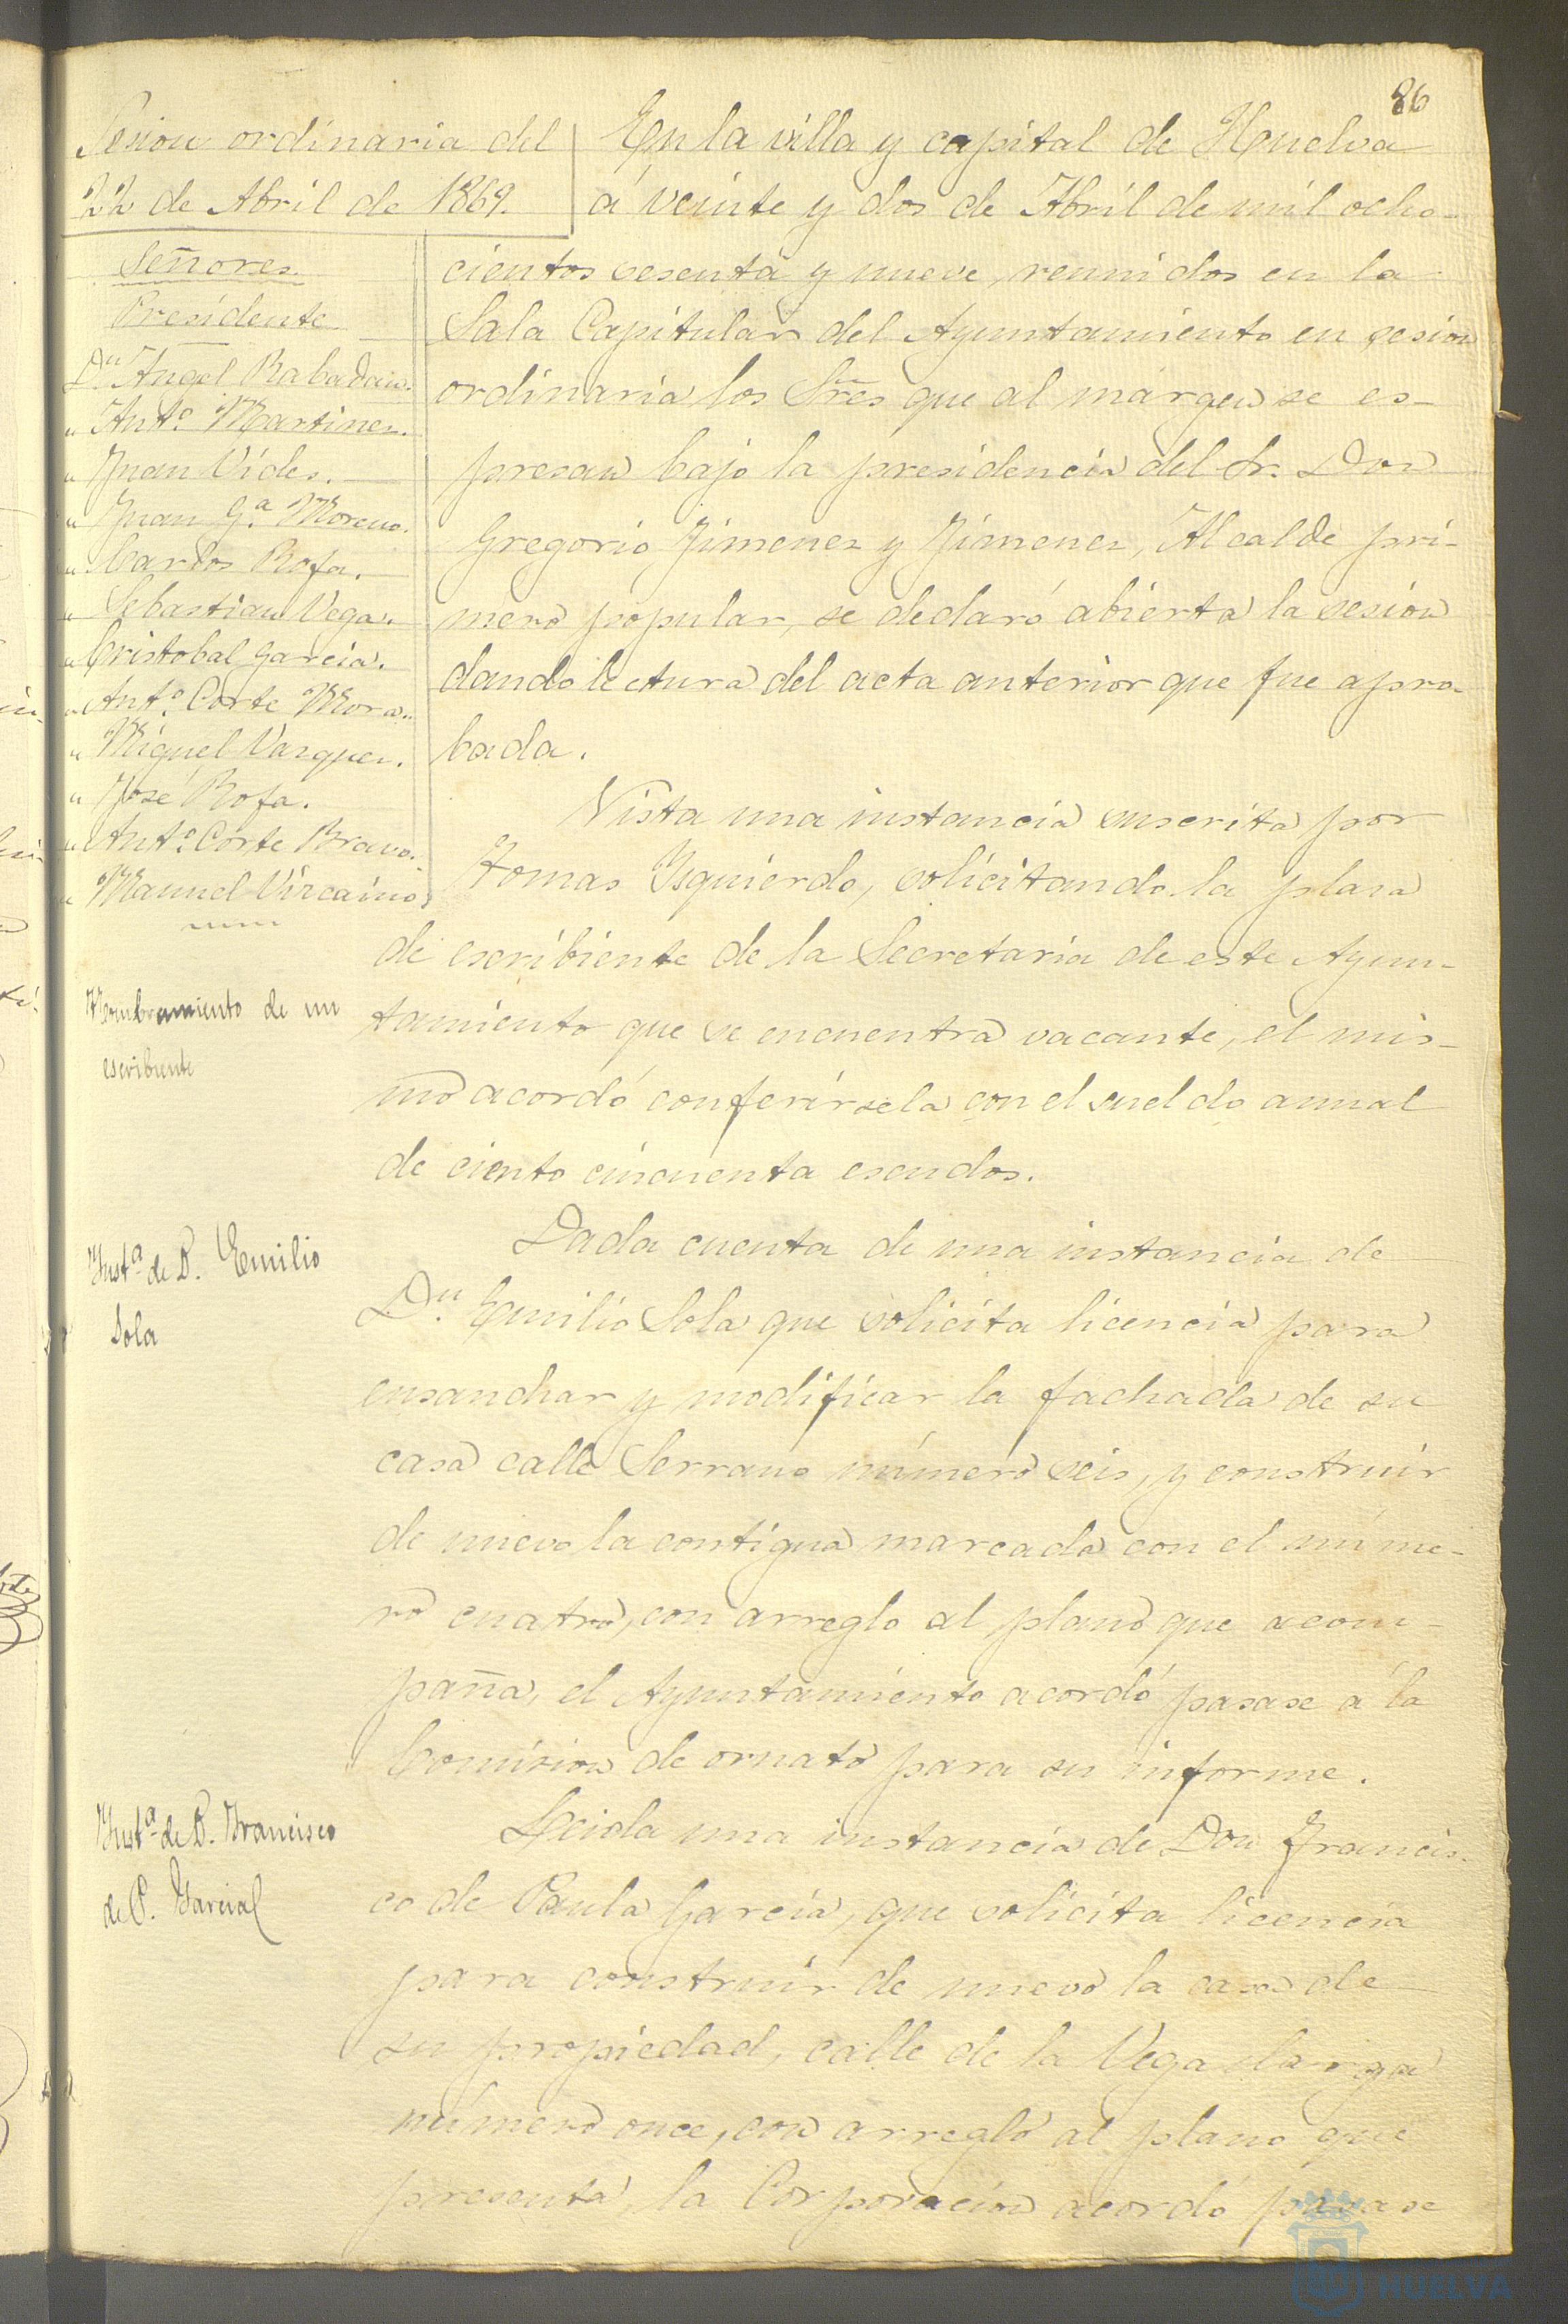 86
Sesion ordinaria del
22 de Abril de 1869.
Señores
Presidente
Dn. Angel Rabadan.
" Anto. Martinez.
" Juan Vides.
" Juan Ga. Moreno.
" Carlos Rofa.
" Sebastian Vega.
" Cristobal Garcia.
" Anto. Corte Mora.
" Miguel Vazquez.
" José Rofa.
" Anto. Corte Bravo.
" Manuel Vizcaino.
En la villa y capital de Huelva
á veinte y dos de Abril de mil ocho-
cientos sesenta y nueve, reunidos en la
Sala Capitular del Ayuntamiento en sesion
ordinaria los Sres que al márgen se es-
presan bajo la presidencia del Sr. Don
Gregorio Jimenez y Jimenez, Alcalde pri-
mero popular, se declaró abierta la sesion
dando lectura del acta anterior que fue apro-
bada.
Nombramiento de un
escribiente
Vista una instancia suscrita por
Tomas Izquierdo, solicitando la plaza
de escribiente de la Secretaria de este Ayun-
tamiento que se encuentra vacante, el mis-
mo acordó conferírsela con el sueldo anual
de ciento cincuenta escudos.
Insta. de D. Emilio
Sola
Dada cuenta de una instancia de
Dn. Emilio Sola que solicita licencia para
ensanchar y modificar la fachada de su
casa calle Serrano número seis, y construir
de nuevo la contigua marcada con el núme-
ro cuatro, con arreglo al plano que acom-
paña, el Ayuntamiento acordó pasase á la
Comision de ornato para su informe.
Insta. de D. Francisco
de P. Garcia
Leida una instancia de Don Francis-
co de Paula Garcia, que solicita licencia
para construir de nuevo la casa de
su propiedad, calle de la Vega larga
número once, con arreglo al plano que
presenta, la Corporacion acordó pasase
HUELVA